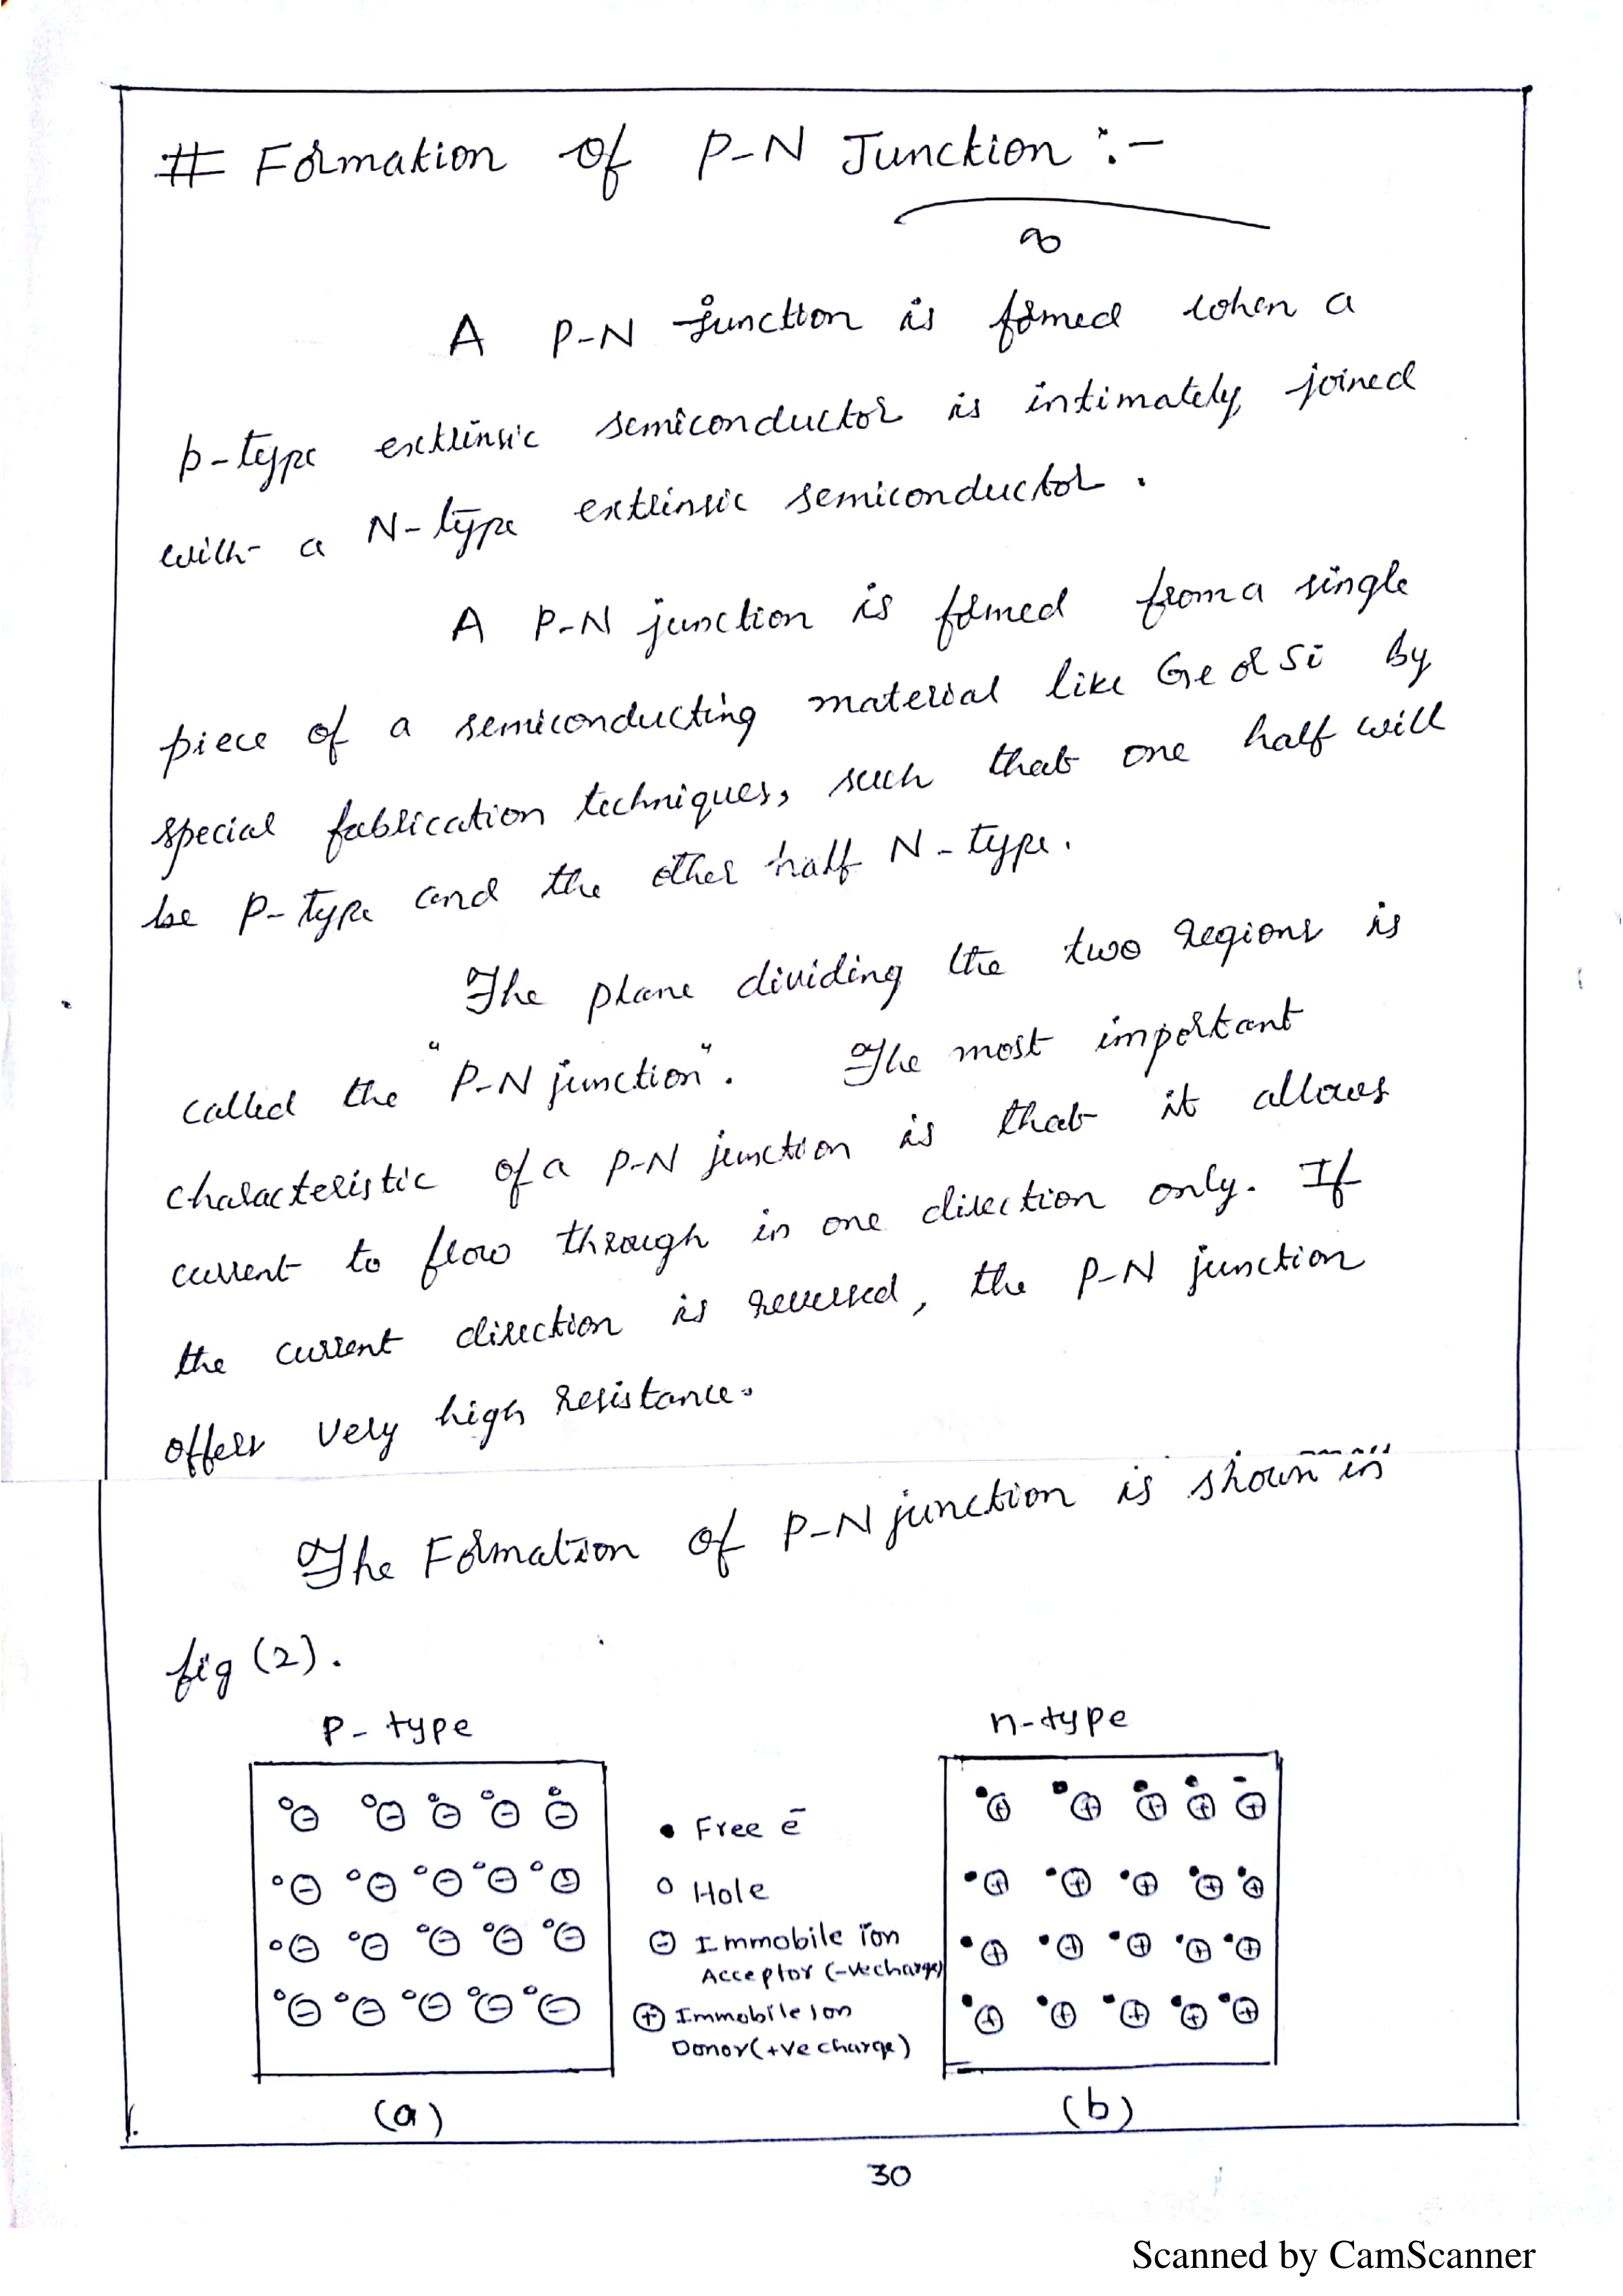 # Formation of P-N Junction :-
A P-N junction is formed when a
p-type extrinsic semiconductor is intimately joined
with a N-type extrinsic semiconductor.
A P-N junction is formed from a single
piece of a semiconducting material like Ge or Si By
special fabrication techniques, such that one half will
be P-type and the other half N-type.
The plane dividing the two regions is
called the "P-N junction". The most important
characteristic of a P-N junction is that it allows
current to flow through in one direction only. If
the current direction is reversed, the P-N junction
offers very high resistance.
The Formation of P-N junction is shown in
fig (2).
P-type
n-type
• Free e̅
o Hole
⊖ Immobile ion
Acceptor (-ve charge)
⊕ Immobile Ion
Donor (+ve charge)
(a)
(b)
30
Scanned by CamScanner